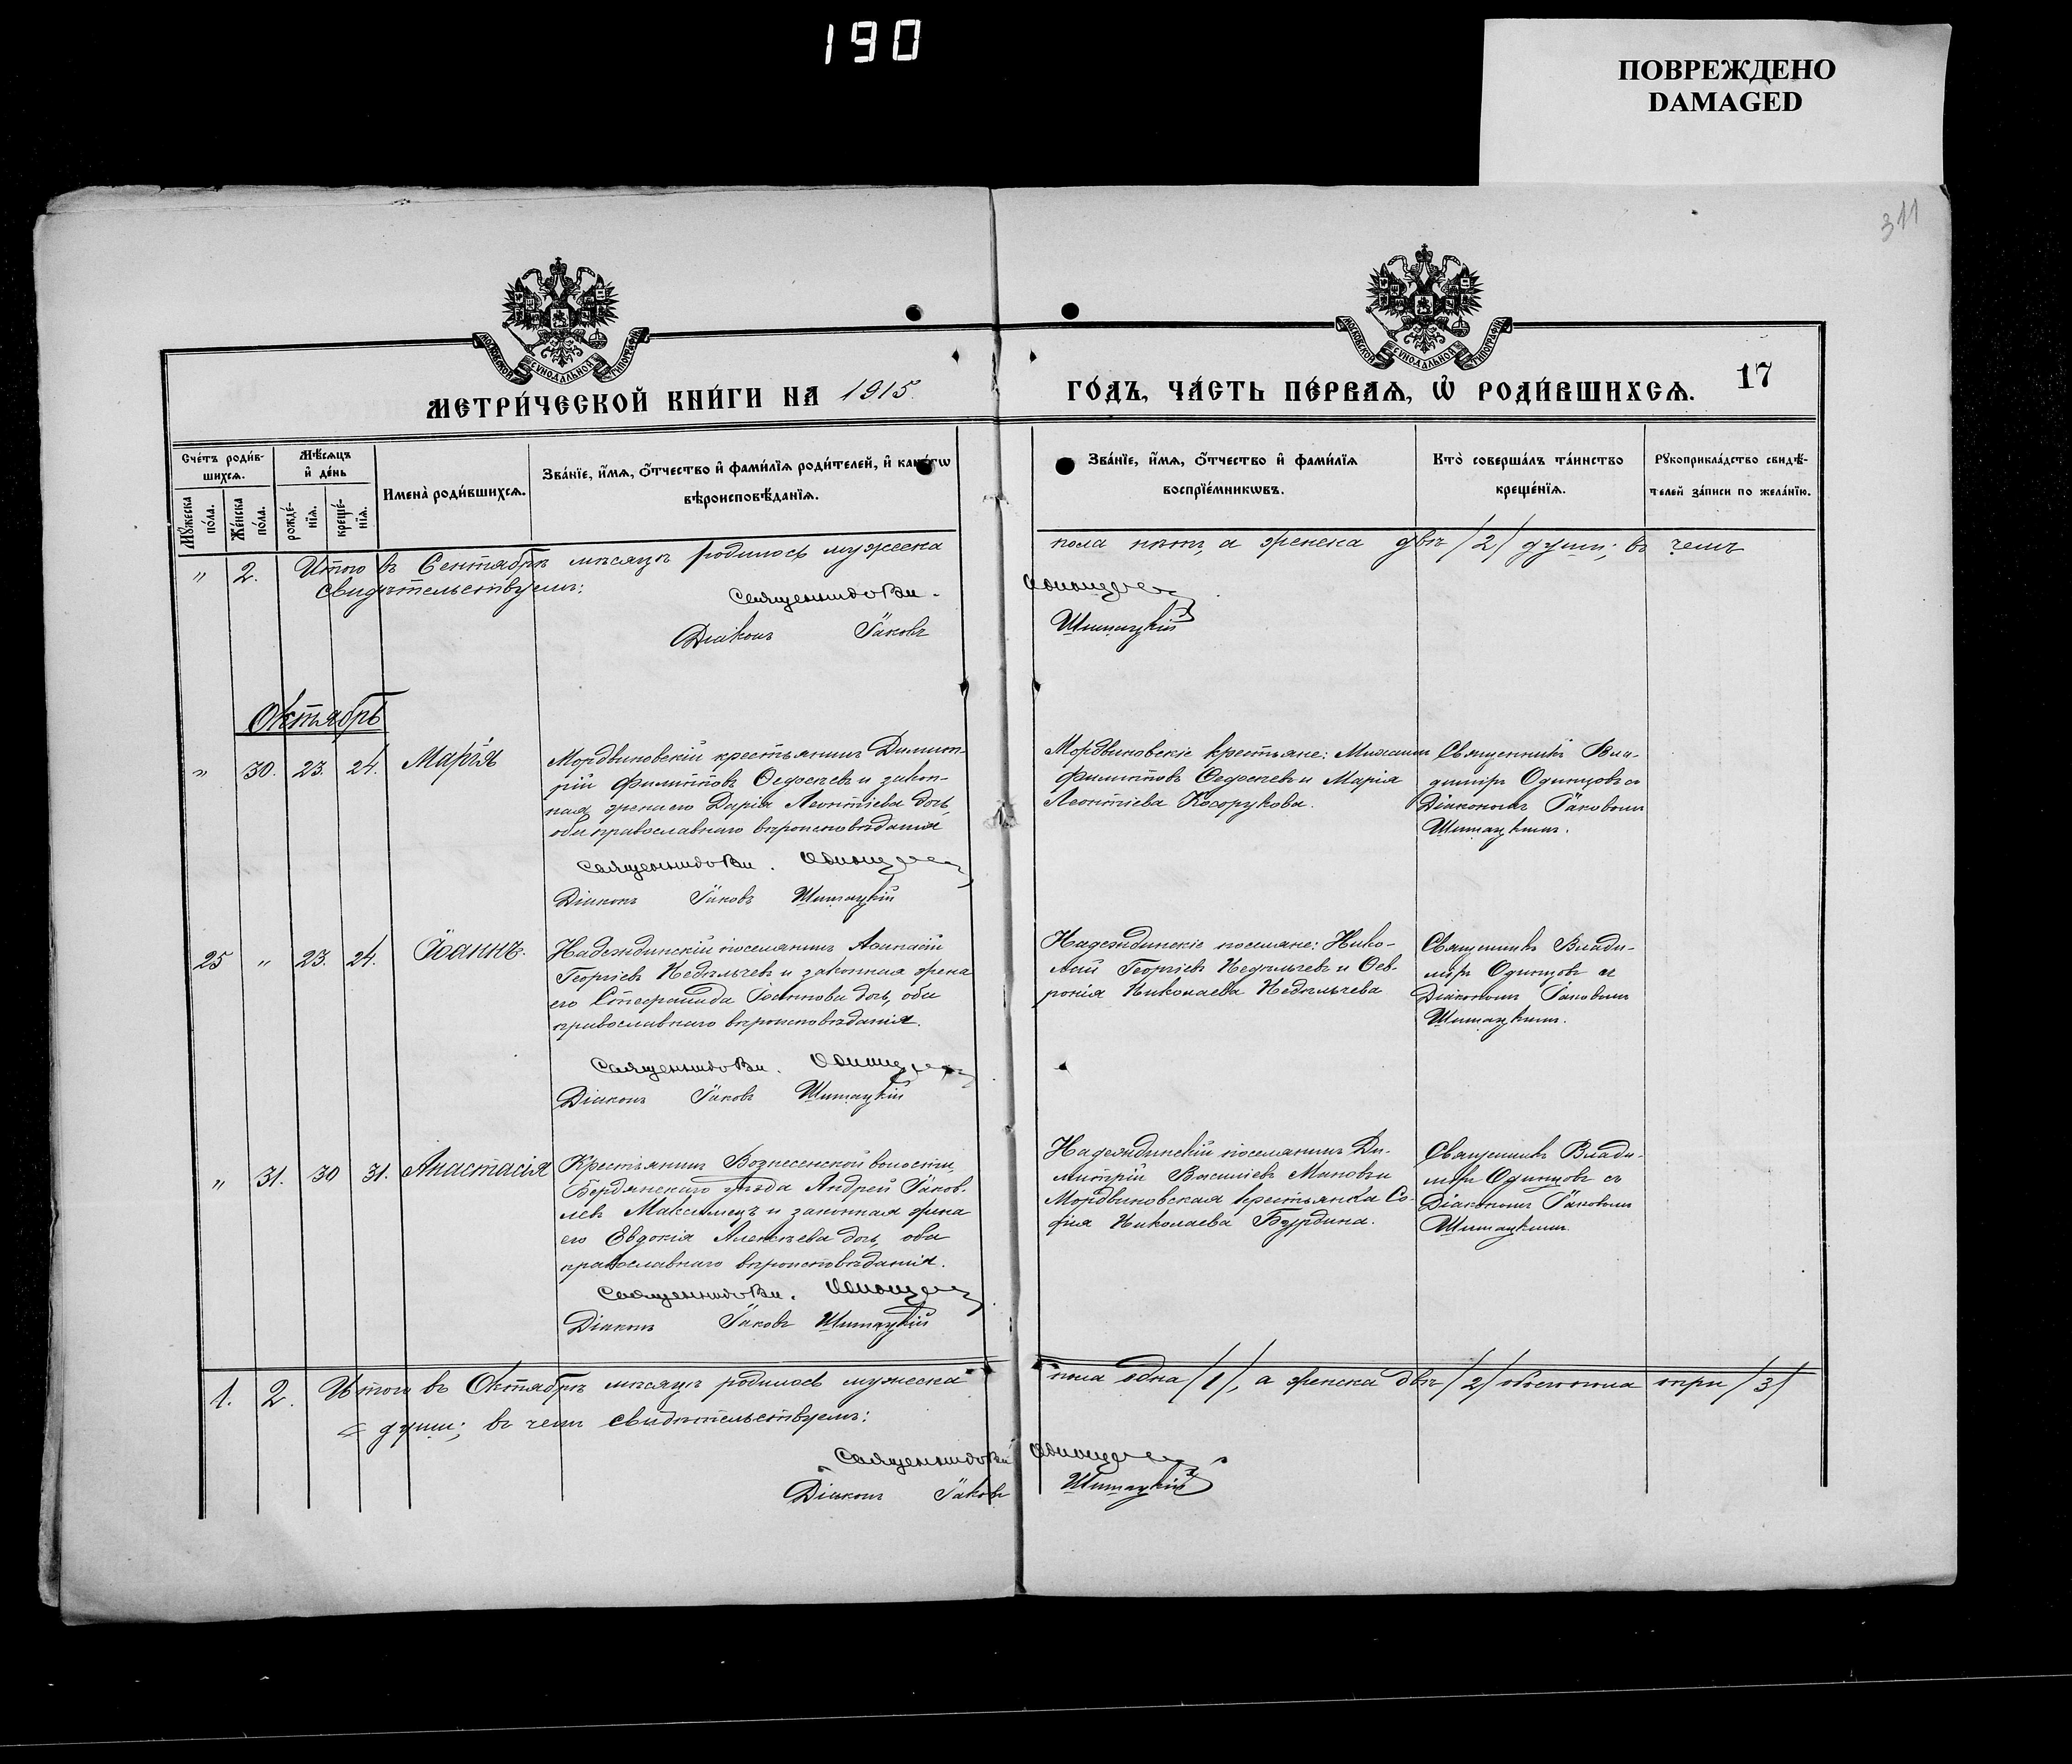 190
ПОВРЕЖДЕНО
DAMAGED
311
МОСКОВСКОЙ СѴНОДАЛЬНОЙ ТИПОГРАФІИ
МОСКОВСКОЙ СѴНОДАЛЬНОЙ ТИПОГРАФІИ
МЕТРИ́ЧЕСКОЙ КНИ́ГИ НА 1915. ГО́ДЪ, ЧА́СТЬ ПЕ́РВАѦ, Ѡ҆ РОДИ́ВШИХСѦ. 17
Сче́тъ роди́в-
шихсѧ.
Мꙋ́жеска по́ла.
Же́нска по́ла.
Мѣ́сѧцъ
и҆ де́нь
рожде́-
нїѧ.
креще́-
нїѧ.
Имена̀ роди́вшихсѧ.
Зва́нїе, и҆́мѧ, ѻ҆́тчество и҆ фами́лїѧ роди́телей, и҆ како́гѡ
вѣроисповѣ́данїѧ.
Зва́нїе, и҆́мѧ, ѻ҆́тчество и҆ фами́лїѧ
воспрїе́мникѡвъ.
Кто̀ соверша́лъ та́инство
креще́нїѧ.
Рꙋкоприкла́дство свидѣ́-
телей за́писи по жела́нїю.
" 2. Итого въ Сентябрѣ мѣсяцѣ родилось мужеска пола нѣтъ, а женска двѣ /2/ души; въ чемъ
свидѣтельствуемъ:
Священник Вл. Одинцов
Діаконъ Іаковъ Шитацкій
Октябрь
" 30. 23. 24. Марія
Мордвиновскій крестьянинъ Димит-
рій Филипповъ Федосѣевъ и закон-
ная жена его Дарія Леонтіева дочь,
оба православнаго вѣроисповѣданія
Священник Вл. Одинцов
Діаконъ Іаковъ Шитацкій
Мордвиновскіе крестьяне: Михаилъ
Филипповъ Федосѣевъ и Марія
Леонтіева Косорукова.
Священникъ Вла-
диміръ Одинцовъ съ
Діакономъ Іаковомъ
Шитацкимъ.
25 " 23. 24. Іоаннъ.
Надеждинскій поселянинъ
Георгіевъ Недѣльчевъ и законная жена
его Стефанида Іоаннова дочь, оба
православнаго вѣроисповѣданія.
Священник Вл. Одинцов
Діаконъ Іаковъ Шитацкій
Надеждинскіе поселяне: Нико-
лай Георгіевъ Недѣльчевъ и Фев-
ронія Николаева Недѣльчева
Священникъ Влади-
міръ Одинцовъ съ
Діакономъ Іаковомъ
Шитацкимъ.
" 31. 30 31. Анастасія
Крестьянинъ Вознесенской волости,
Бердянскаго уѣзда Андрей Іаков-
левъ Максимецъ и законная жена
его Евдокія Алексѣева дочь, оба
православнаго вѣроисповѣданія.
Священник Вл. Одинцов
Діаконъ Іаковъ Шитацкій
Надеждинскій поселянинъ Ди-
митрій Василіевъ и
Мордвиновская крестьянка Со-
фія Николаева Бурдина.
Священникъ Влади-
міръ Одинцовъ съ
Діакономъ Іаковомъ
Шитацкимъ
1. 2. Итого въ Октябрѣ мѣсяцѣ родилось мужеска пола одна /1/, а женска двѣ /2/ обоего пола три /3/
души; въ чемъ свидѣтельствуемъ:
Священник Вл. Одинцов
Діаконъ Іаковъ Шитацкій